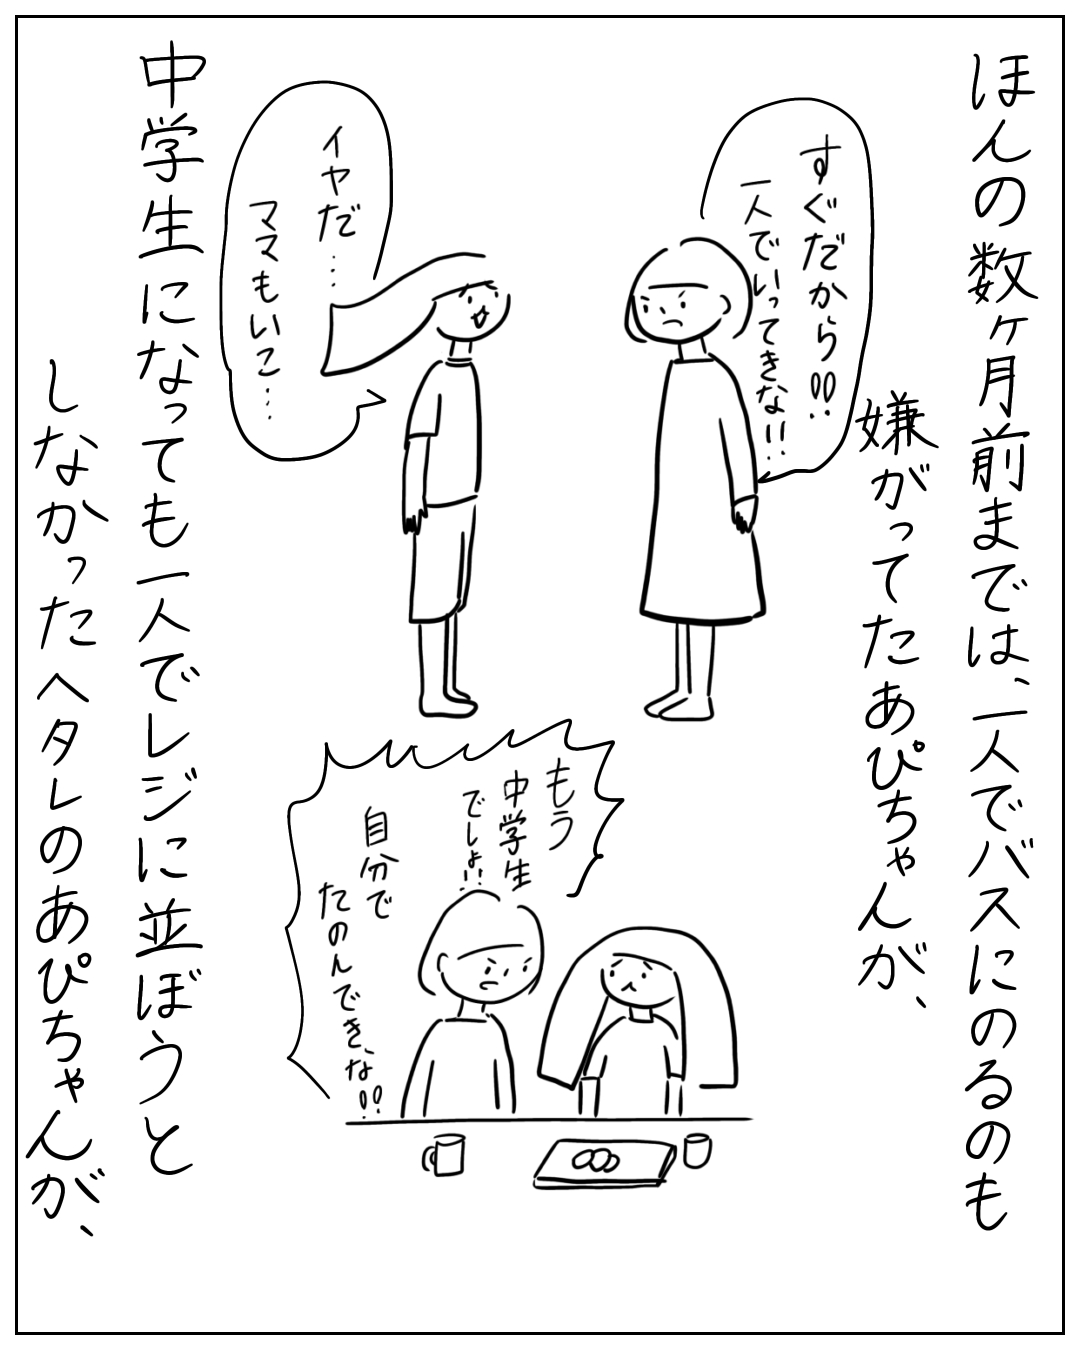 ほんの数ヶ月前までは、一人でバスにのるのも
嫌がってたあぴちゃんが、
すぐだから!!
一人でいってきな!!
イヤだ……
ママもいこ…
中学生になっても一人でレジに並ぼうと
しなかったヘタレのあぴちゃんが、
もう
中学生
でしょ!!
自分で
たのんできな!!